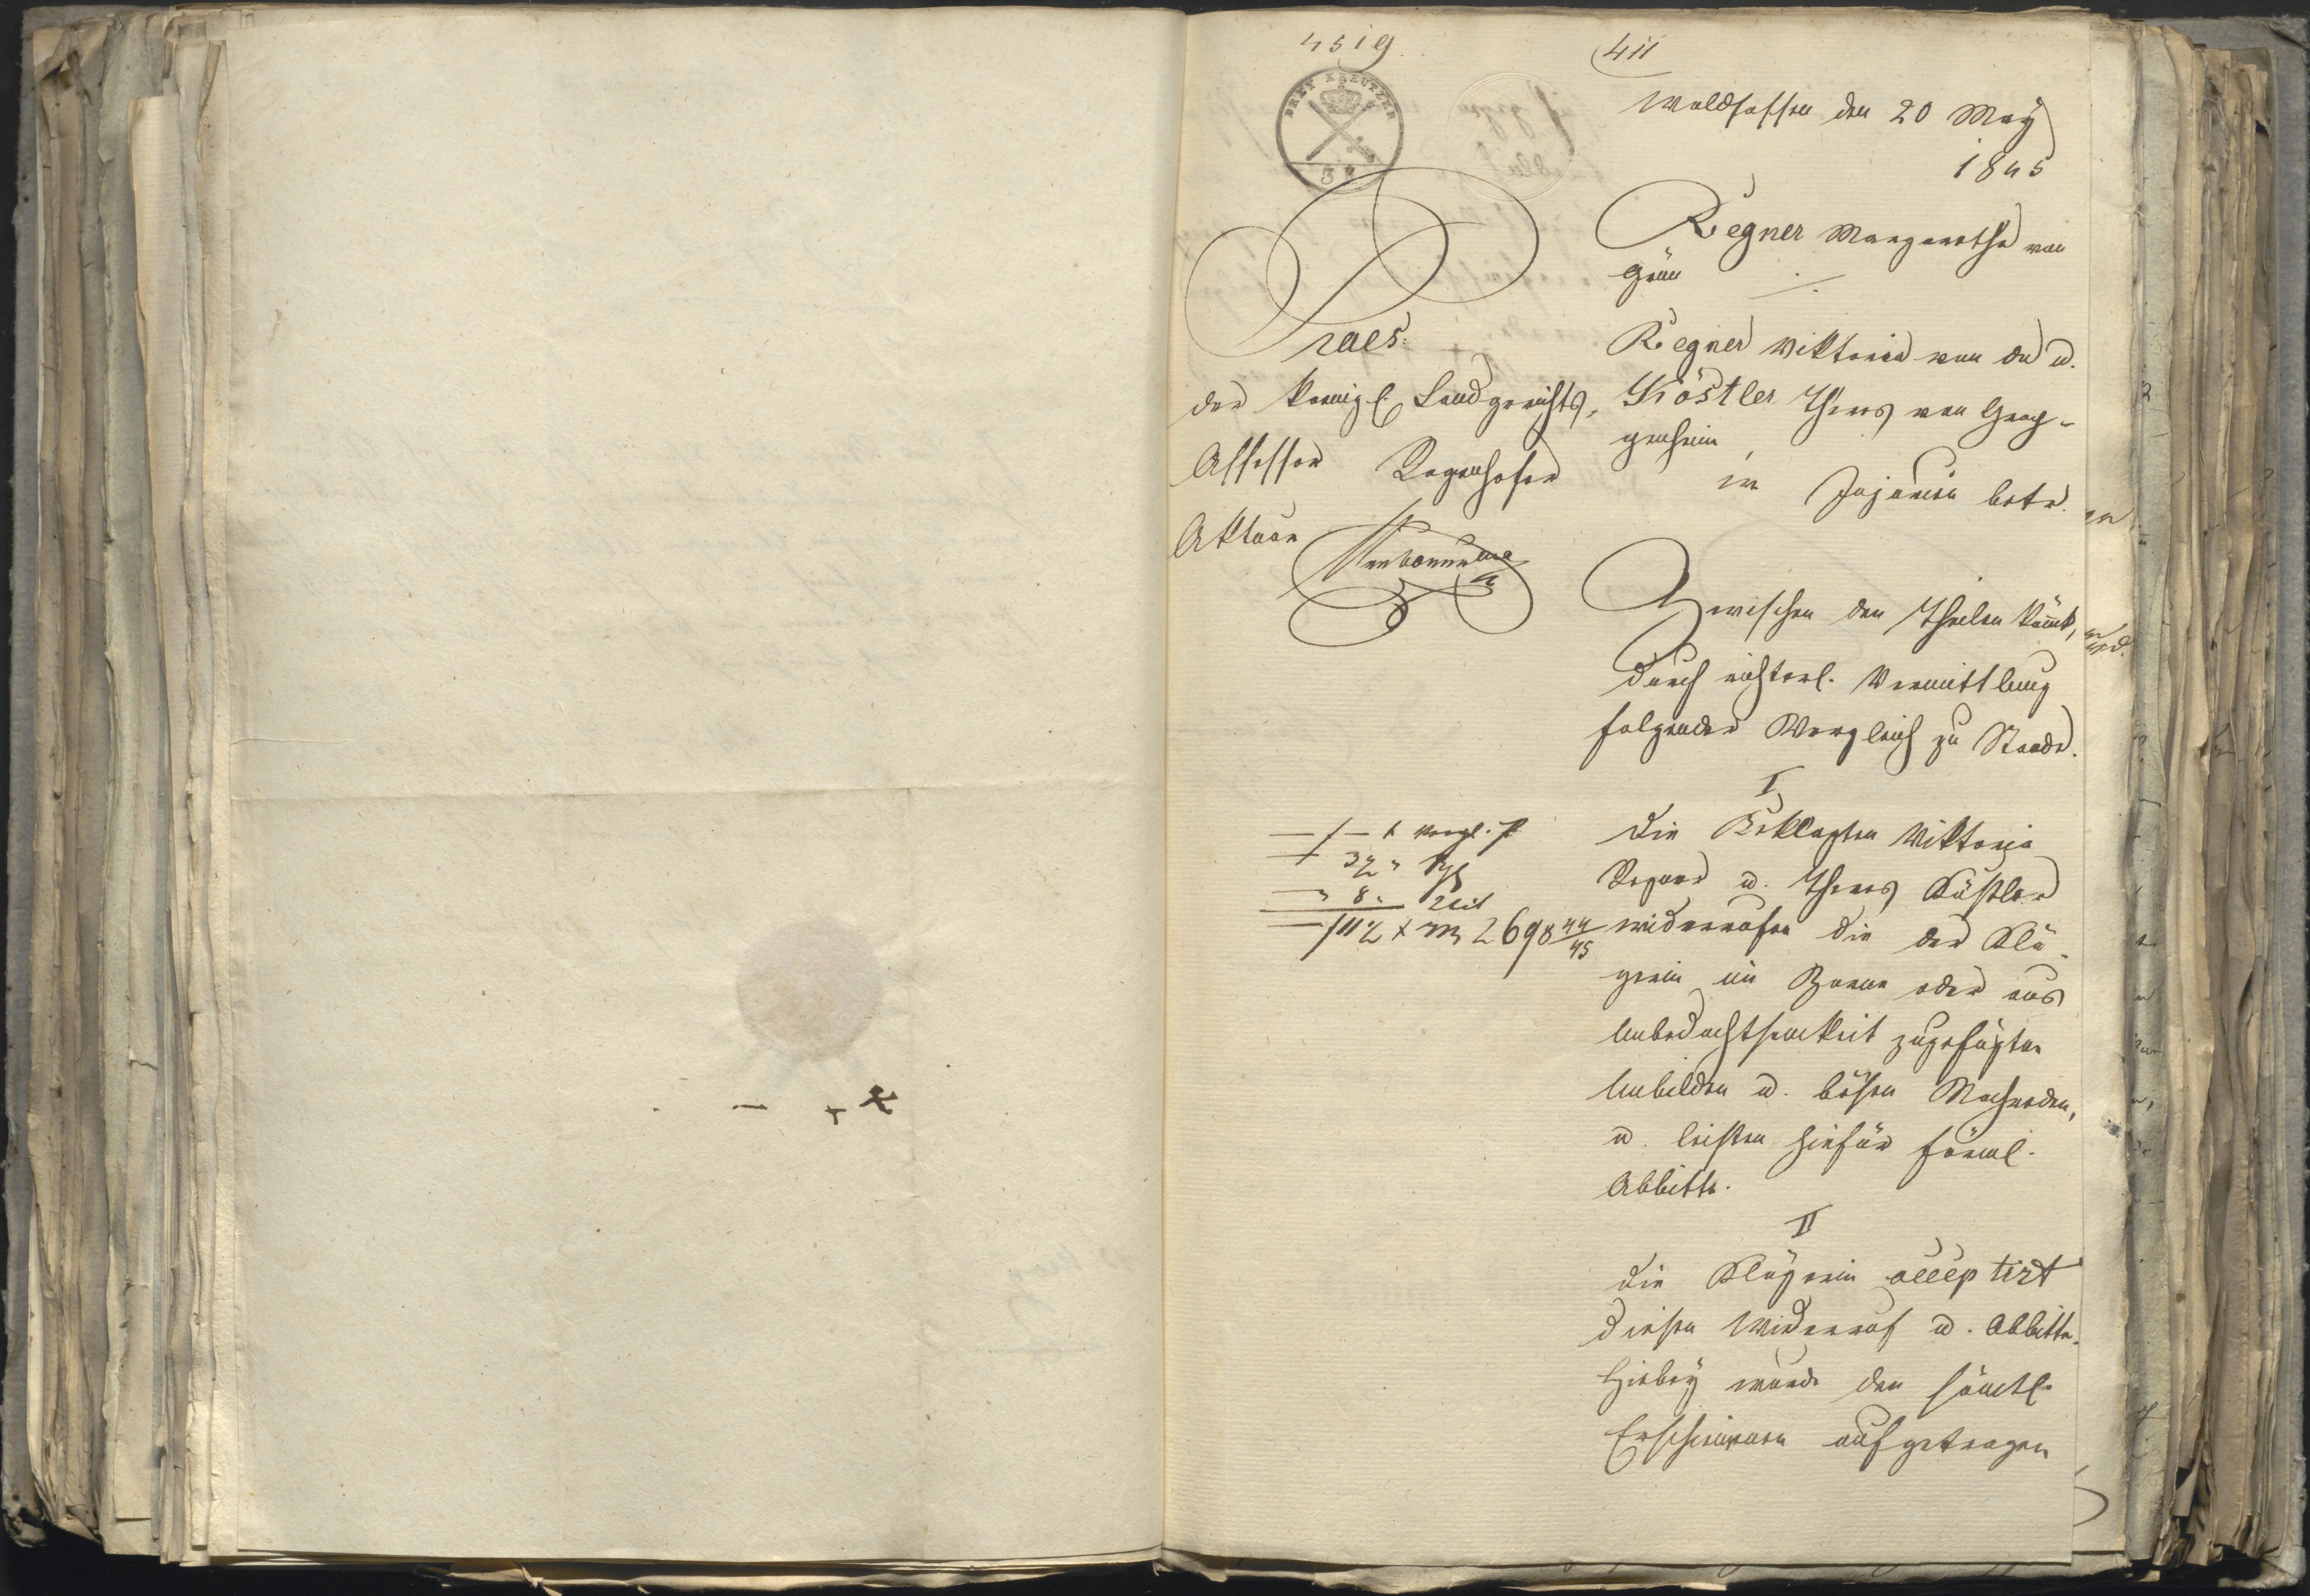 4519
411
DREY KREUTZER
3 K
Waldsassen den 20 May
1845
Praes:
der königl. Landgerichts,
Assessor Regenhofer
Aktuar
Regner Margaretha von
Grün ./.
Regner Viktoria von da u.
Köstler Theres von
in Injurien betr.
Zwischen den Theilen kömt,
durch richterl. Vermittlung
folgender Vergleich zu Stande.
I
Die Beklagten Viktoria
Regner u. Theres Köstler
widerrufen die der Klä-
gerin im Zorne oder aus
Unbedachtsamkeit zugefügten
Unbilden u. bösen Nachreden,
u. leisten hiefür förml.
Abbitte.
II
Die Klägerin acceptirt
diesen Widerruf u. Abbitte.
Hiebey wurde den sämtl.
Erschienenen aufgetragen
2698 44/45